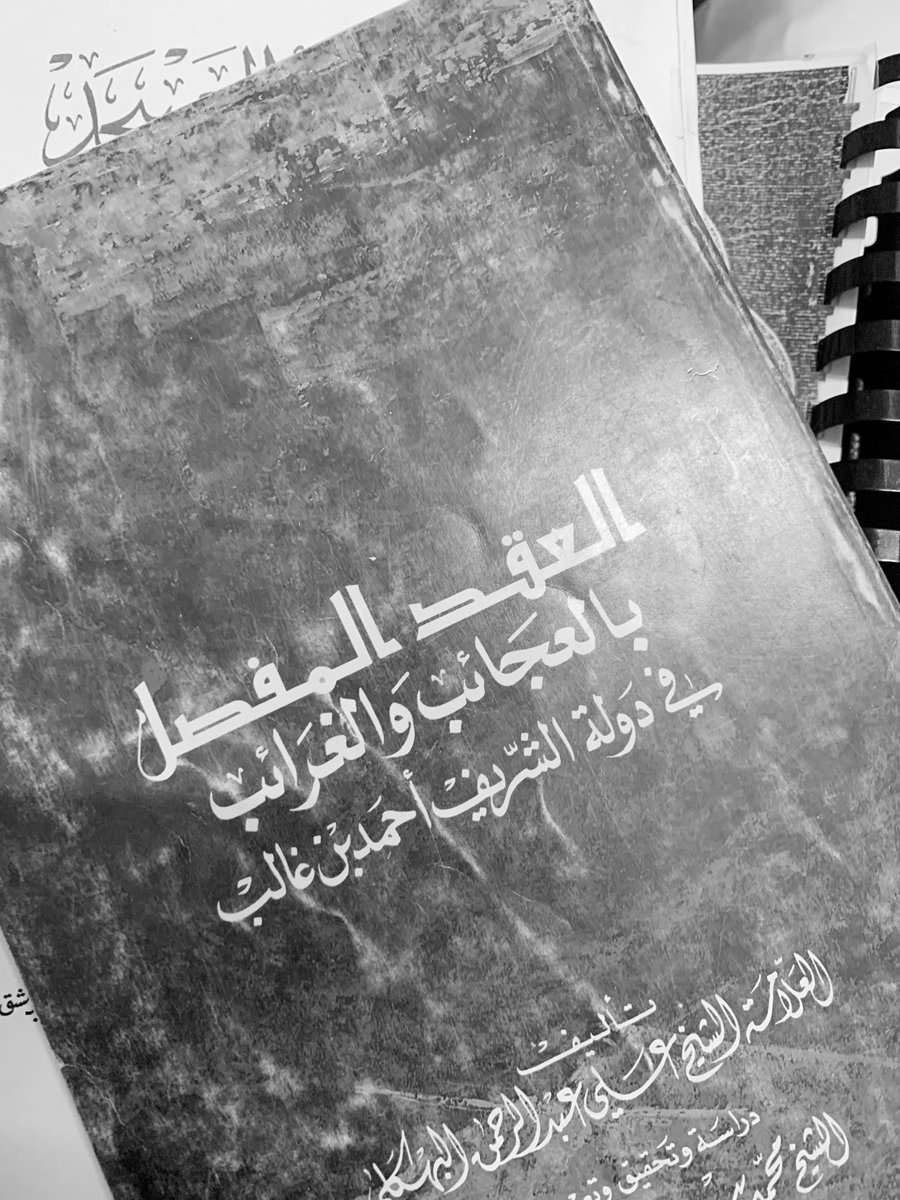 العقد المفصل
بالعجائب والغرائب
في دولة الشريف أحمد بن غالب
تأليف
العلامة الشيخ علي عبد الرحمن البهكلي
دراسة وتحقيق
الشيخ محمد